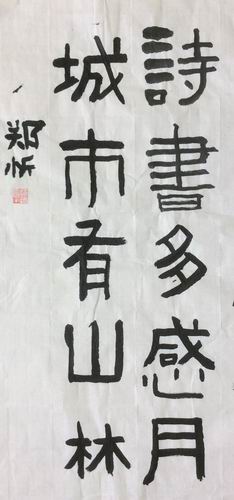 詩書多感月
城市有山林
郑忻